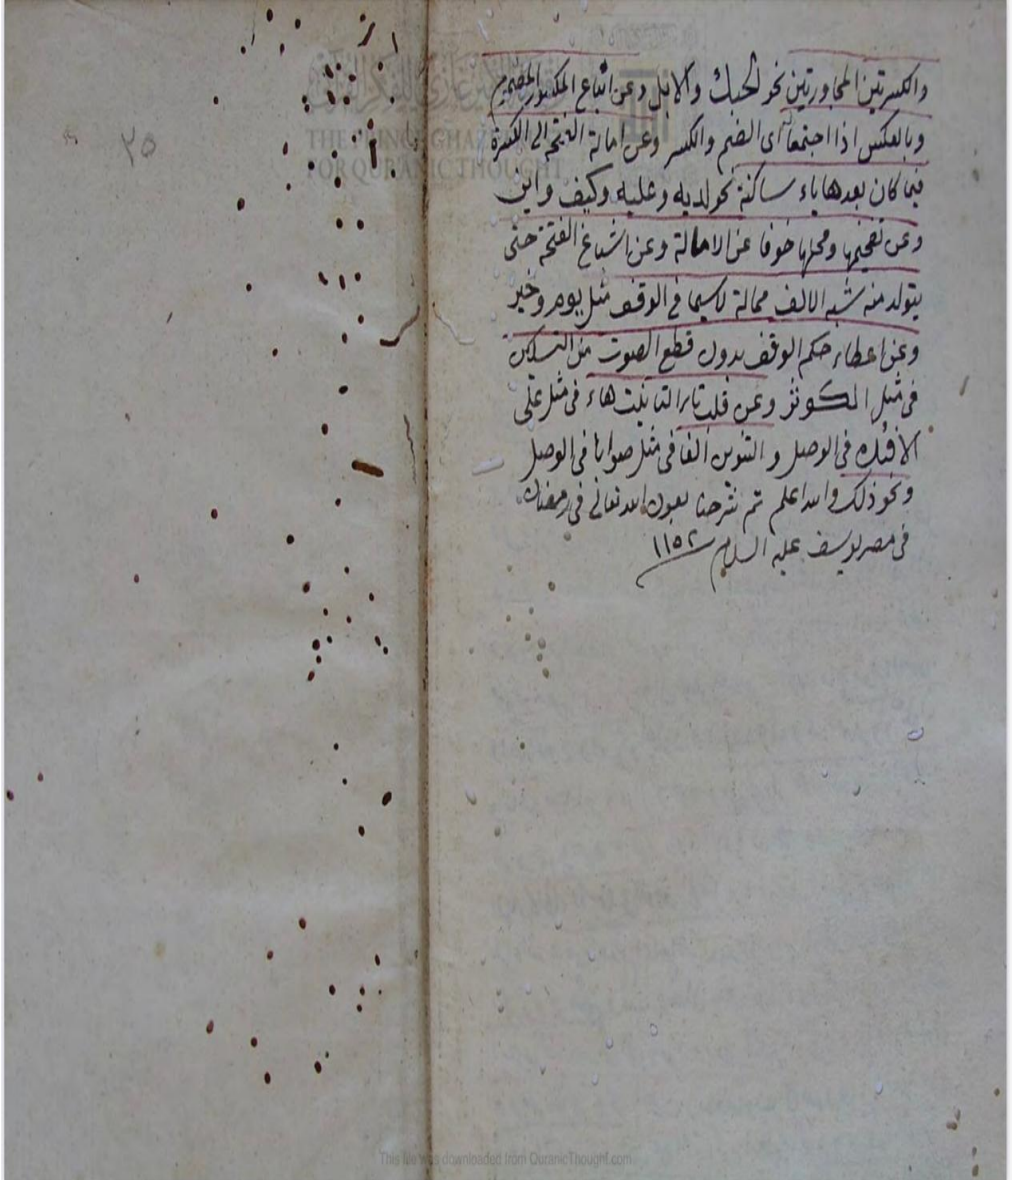 والكسرتين المجاورتين نحو الحبك والابل وعن اتباع المكسور المضموم
وبالعكس اذا اجتمعا اى الضم والكسر وعن امالة الفتحة الى الكسرة
فيما كان بعدها ياء ساكنة نحو لديه وعليه وكيف واين
وعن تفخيمها ومحلها خوفا عن الامالة وعن اشباع الفتحة حتى
يتولد منه شبه الالف ممالة لاسيما فى الوقف مثل يوم وخير
وعن اعطاء حكم الوقف بدون قطع الصوت من
فى مثل الكوثر وعن قلب تاء التانيث هاء فى مثل على
الافئدة فى الوصل و التنوين الفا فى مثل صوابا فى الوصل
ونحو ذلك والله اعلم تم شرحنا بعون الله تعالى فى رمضان
فى مصر يوسف عليه السلام ١١٥٢
٢٥
THE PRINCE GHAZI
FOR QURANIC THOUGHT
This file was downloaded from QuranicThought.com